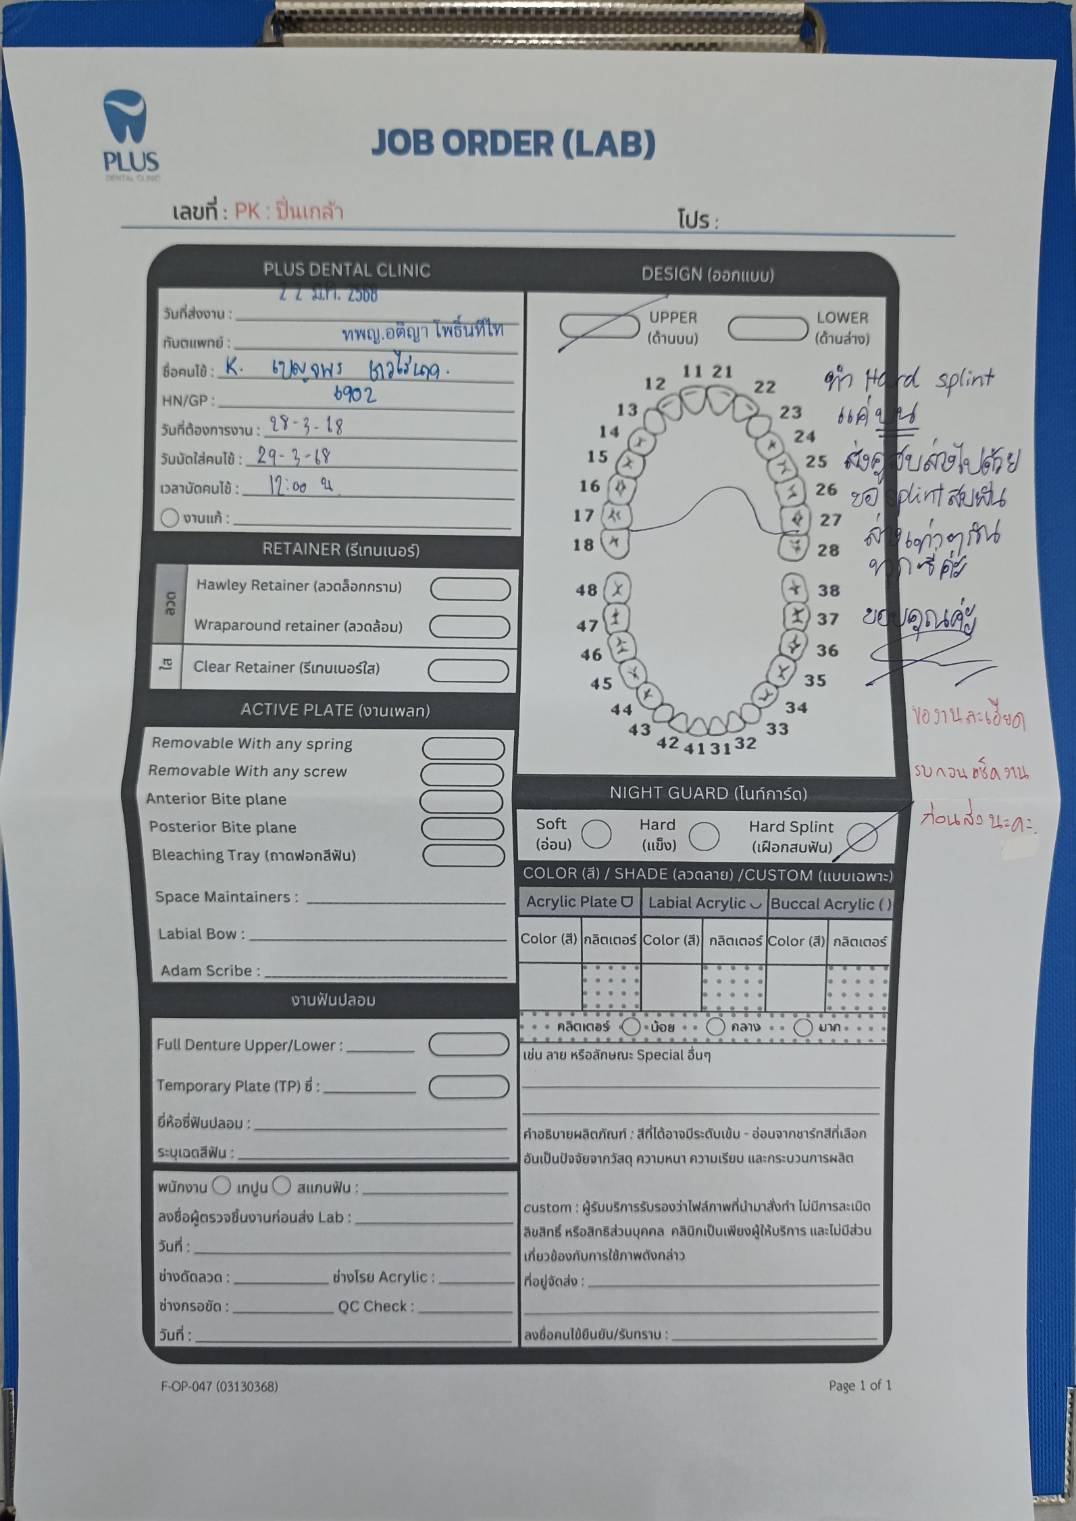 PLUS
DENTAL CLINIC
JOB ORDER (LAB)
เลขที่ : PK : ปิ่นเกล้า
โปร :
PLUS DENTAL CLINIC
22 มี.ค. 2568
วันที่ส่งงาน :
ทันตแพทย์ : ทพญ.อติญา โพธิ์นทีไท
ชื่อคนไข้ : K.
HN/GP : 6902
วันที่ต้องการงาน : 28-3-68
วันนัดใส่คนไข้ : 29-3-68
เวลานัดคนไข้ : 17:00 น.
งานแก้ :
RETAINER (รีเทนเนอร์)
ลวด
Hawley Retainer (ลวดล็อกกราม)
Wraparound retainer (ลวดล้อม)
ใส
Clear Retainer (รีเทนเนอร์ใส)
ACTIVE PLATE (งานเพลท)
Removable With any spring
Removable With any screw
Anterior Bite plane
Posterior Bite plane
Bleaching Tray (ถาดฟอกสีฟัน)
Space Maintainers :
Labial Bow :
Adam Scribe :
งานฟันปลอม
Full Denture Upper/Lower :
Temporary Plate (TP) ซี่ :
ยี่ห้อซี่ฟันปลอม :
ระบุเฉดสีฟัน :
พนักงาน เทปูน สแกนฟัน :
ลงชื่อผู้ตรวจชิ้นงานก่อนส่ง Lab :
วันที่ :
ช่างดัดลวด : ช่างโรย Acrylic :
ช่างกรอขัด : QC Check :
วันที่ :
DESIGN (ออกแบบ)
UPPER
(ด้านบน)
LOWER
(ด้านล่าง)
11 21
12 22
13 23
14 24
15 25
16 26
17 27
18 28
48 38
47 37
46 36
45 35
44 34
43 33
42 41 31 32
ทำ Hard splint
แค่ บน
ส่งคู่สบล่างไปด้วย
ขอ splint สบฟัน
ล่างเท่าๆกัน
ทุกซี่ค่ะ
ขอบคุณค่ะ
ของานละเอียด
รบกวนเช็คงาน
ก่อนส่งนะคะ
NIGHT GUARD (ไนท์การ์ด)
Soft
(อ่อน)
Hard
(แข็ง)
Hard Splint
(เฝือกสบฟัน)
COLOR (สี) / SHADE (ลวดลาย) /CUSTOM (แบบเฉพาะ)
Acrylic Plate Labial Acrylic Buccal Acrylic ( )
Color (สี) กลิตเตอร์ Color (สี) กลิตเตอร์ Color (สี) กลิตเตอร์
กลิตเตอร์ น้อย กลาง มาก
เช่น ลาย หรือลักษณะ Special อื่นๆ
คำอธิบายผลิตภัณฑ์ : สีที่ได้อาจมีระดับเข้ม - อ่อนจากชาร์ทสีที่เลือก
อันเป็นปัจจัยจากวัสดุ ความหนา ความเรียบ และกระบวนการผลิต
custom : ผู้รับบริการรับรองว่าไฟล์ภาพที่นำมาสั่งทำ ไม่มีการละเมิด
ลิขสิทธิ์ หรือสิทธิส่วนบุคคล คลินิกเป็นเพียงผู้ให้บริการ และไม่มีส่วน
เกี่ยวข้องกับการใช้ภาพดังกล่าว
ที่อยู่จัดส่ง :
ลงชื่อคนไข้ยืนยัน/รับทราบ :
F-OP-047 (03130368)
Page 1 of 1